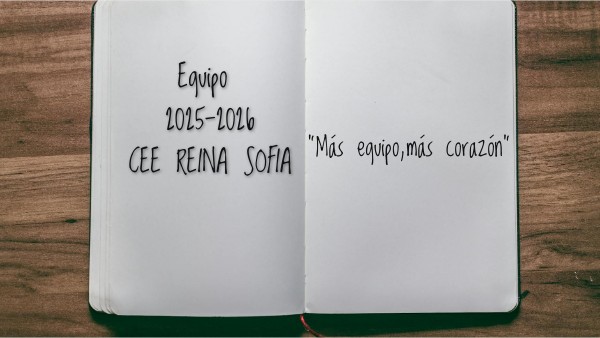 Equipo
2025-2026
CEE REINA SOFIA
"Más equipo,más corazón"